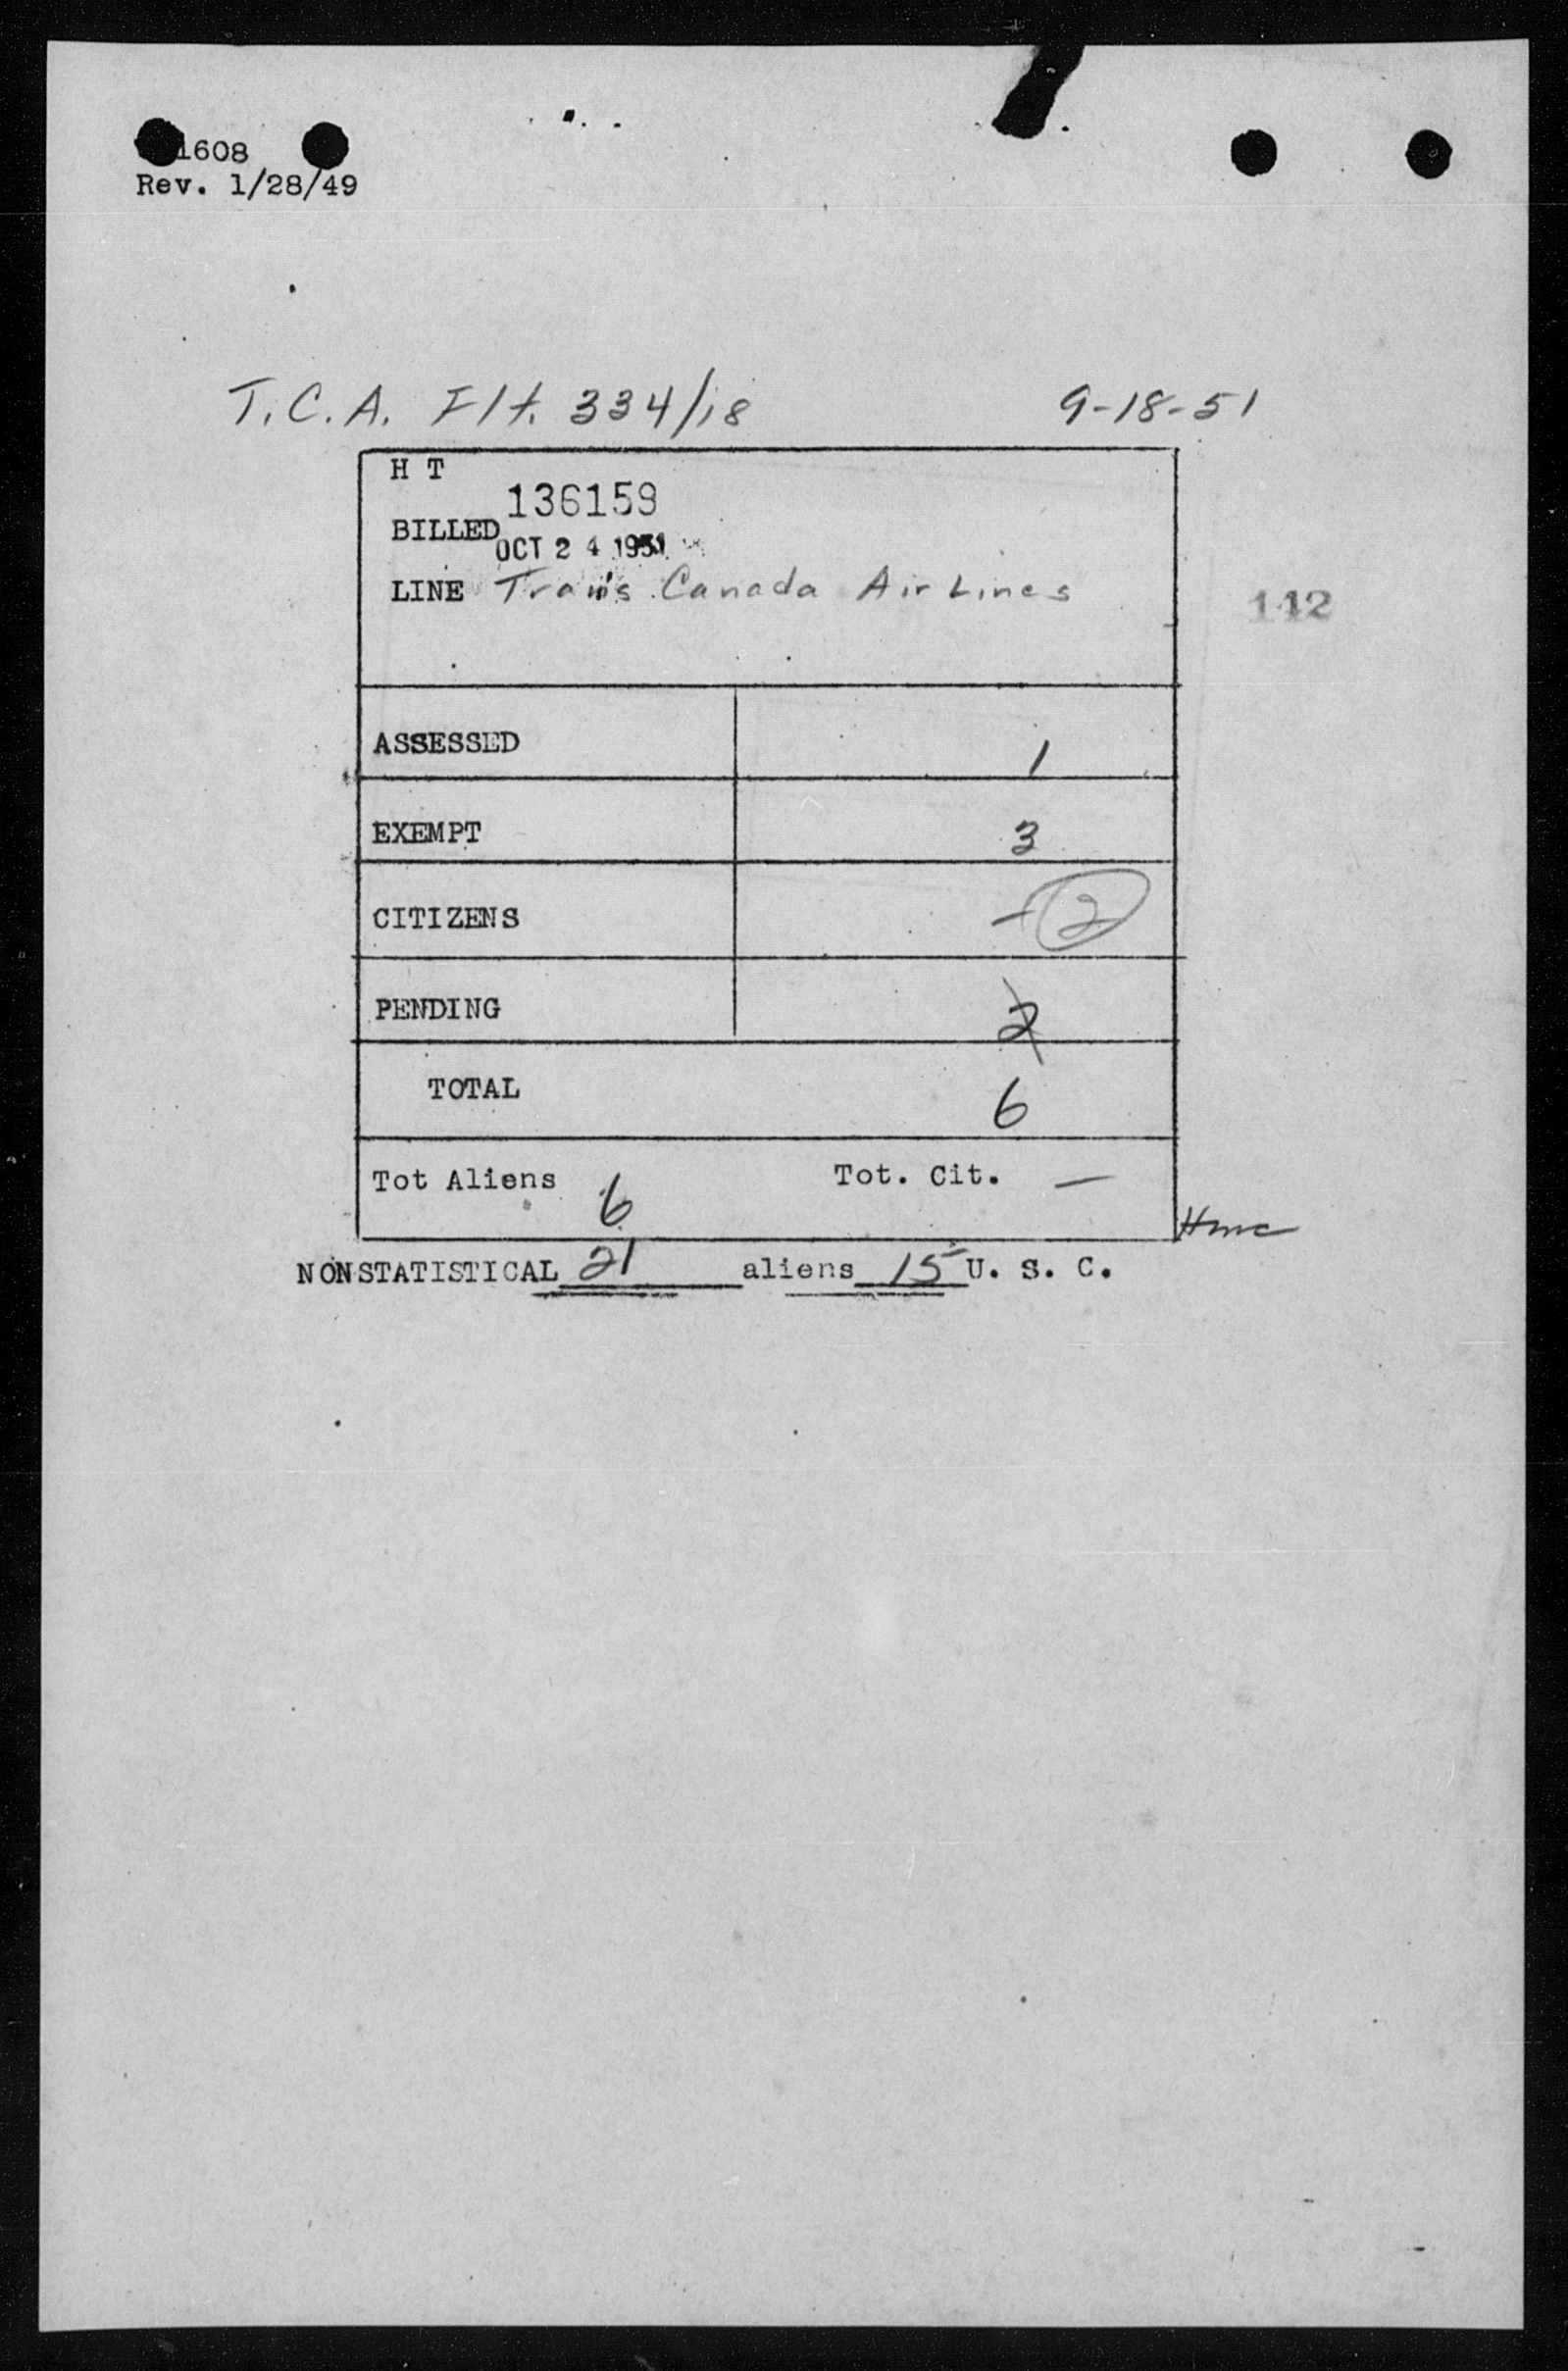 1608
Rev. 1/28/49
T.C.A. Flt. 334/18 9-18-51
H T
136159
BILLED
OCT 24 1951
LINE Trans Canada Air Lines
142
ASSESSED 1
EXEMPT 3
CITIZENS - 2
PENDING 2
TOTAL 6
Tot Aliens 6 Tot. Cit. —
NONSTATISTICAL 21 aliens 15 U. S. C.